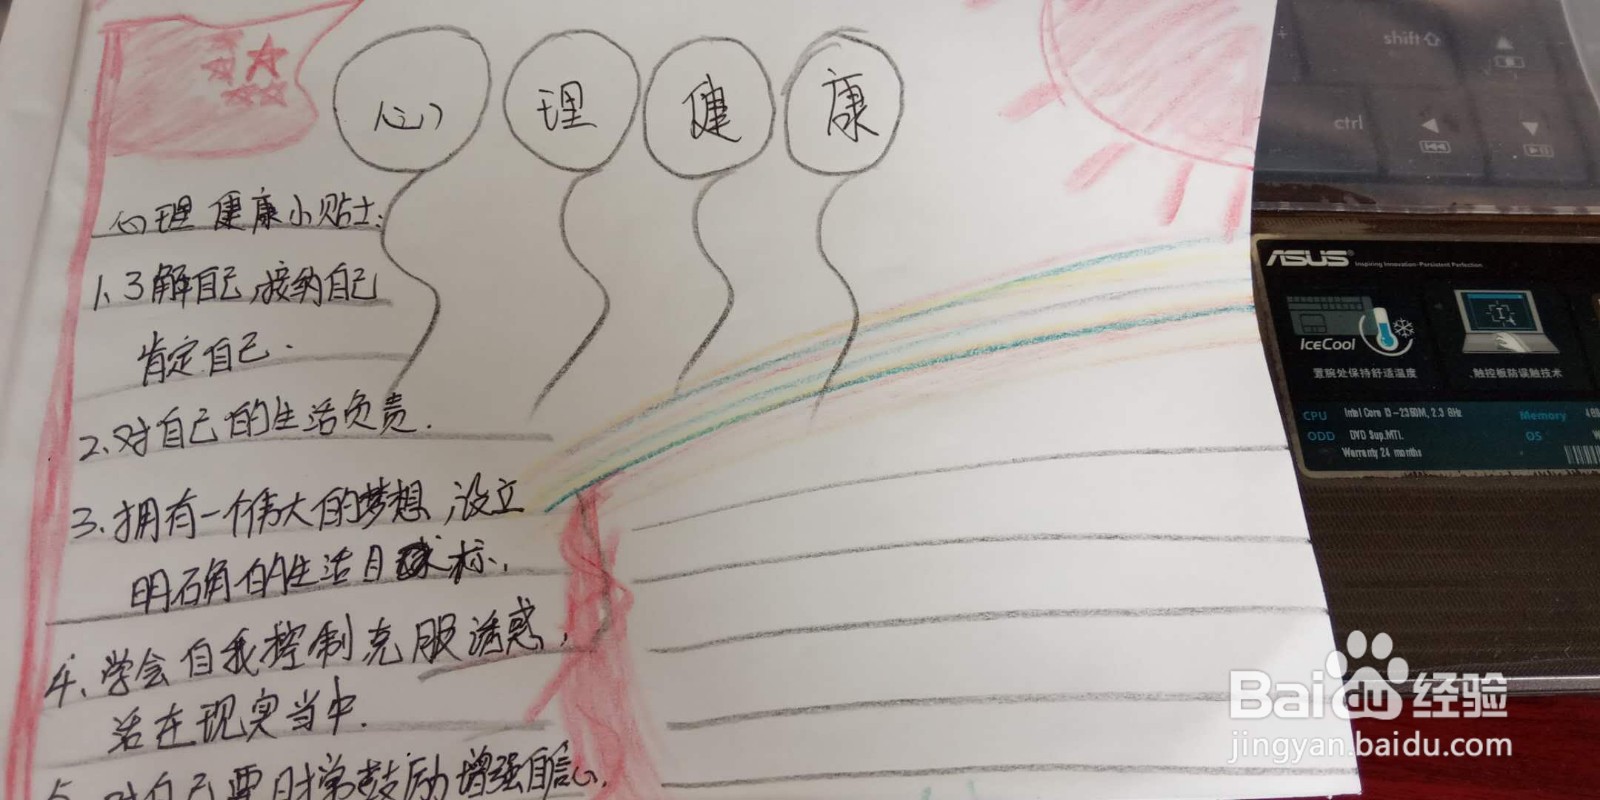 心 理 健 康
心理健康小贴士:
1、了解自己,接纳自己
肯定自己.
2、对自己的生活负责.
3、拥有一个伟大的梦想,设立
明确的生活目标.
4、学会自我控制克服诱惑,
活在现实当中.
5、对自己要时常鼓励增强自信心.
shift
ctrl
ASUS
Inspiring Innovation·Persistent Perfection
IceCool
置腕处保持舒适温度
触控板防误触技术
CPU Intel Core i3-2350M, 2.3 GHz Memory
ODD DVD Sup.MTL OS
Warranty 24 months
Baidu 经验
jingyan.baidu.com